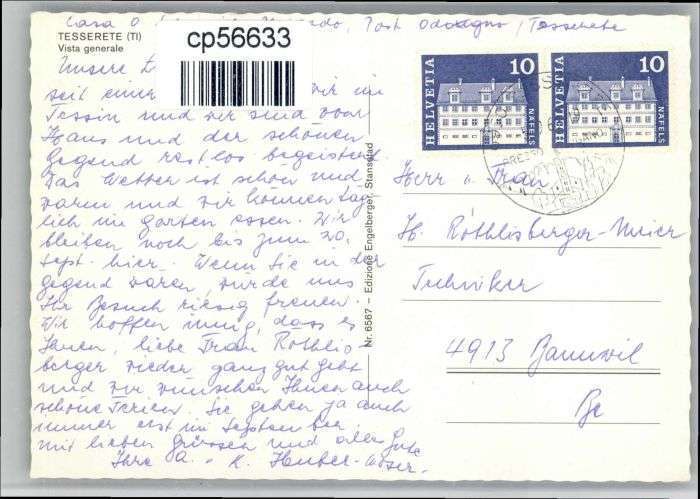 Casa O                    , Post Odogno / Tesserete
TESSERETE (TI)
Vista generale
cp56633
Unsere L
seit einer           wir im
Tessin und wir sind vom
Haus und der schönen
Gegend restlos begeistert.
Das Wetter ist schön und
warm und wir können täg
lich im Garten essen. Wir
bleiben noch bis zum 20.
Sept. hier. Wenn Sie in der
Gegend wären, würde uns
Ihr Besuch riesig freuen.
Wir hoffen innig, dass es
Ihnen, liebe Frau Röthlis-
berger wieder ganz gut geht
und wir wünschen Ihnen auch
schöne Ferien. Sie gehen ja auch
immer erst im September
mit lieben Grüssen und alles Gute
Ihre A. - K. Huber-Moser.
Nr. 6567 – Edizione Engelberger, Stansstad
HELVETIA 10 NÄFELS
HELVETIA 10 NÄFELS
Herr u. Frau
H. Röthlisberger-Meier
Techniker
4913 Bannwil
Be